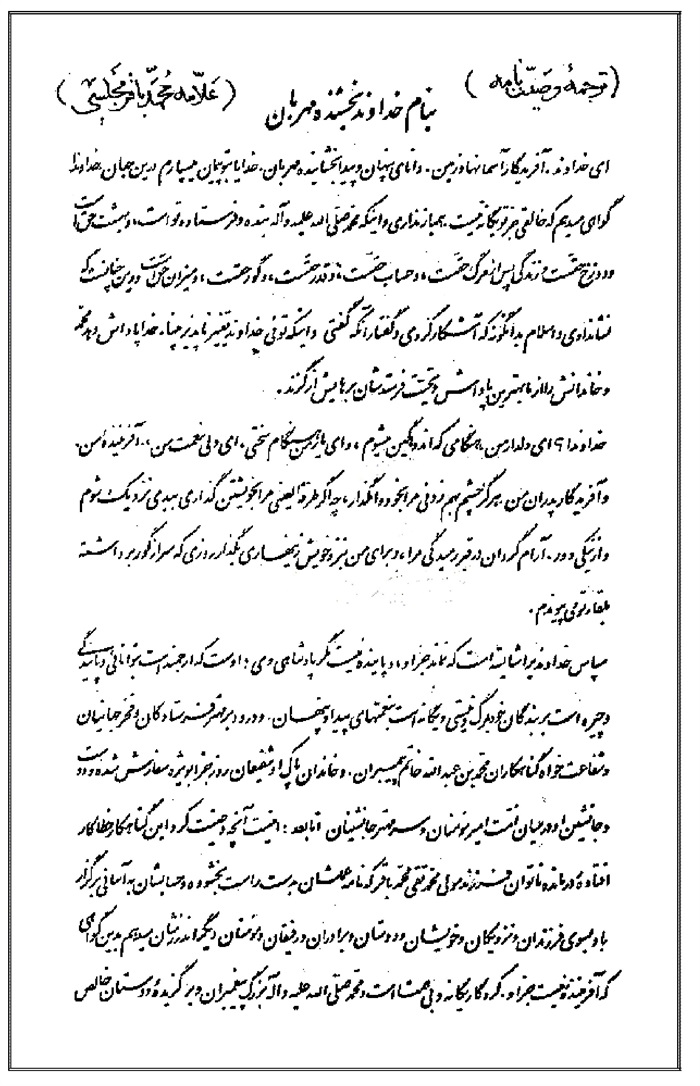 (ترجمهٔ وصیّت‌نامه) (علّامه مُحمّد باقر مجلسی)
بنام خداوند بخشنده مهربان
ای خداوند. آفریدگار آسمانها و زمین. دانای پنهان و پیدا بخشاینده مهربان. خدایا بتو پیمان میسپارم در این جهان خداوندا
گواهی میدهم که خالقی جز تو یگانه نیست. بی‌نیازی و اینکه محمد صلی الله علیه و آله بنده و فرستاده تو است، و بهشت حق است
و دوزخ حقست و زندگی پس از مرگ حقست، و حساب حقست، و قدر حقست، و گور حقست، و میزان حق است و دین چنانست که
نشاندادی و اسلام بدانگونه که آشکار کردی و گفتار آنکه گفتی و اینکه توئی خداوند تغییر ناپذیر خدایا پاداش ده محمد
و خاندانش را از ما بهترین پاداش و تحیّت فرست بر ایشان
خداوندا ای دلدار من، هنگامی که اندوهگین میشوم، و ای یار من هنگام سختی، ای ولی نعمت من.. آفریننده من.
و آفریدگار پدران من. هرگز چشم بهم زدنی مرا بخود وامگذار، چه اگر طرفة العینی مرا بخویشتن گذاری ببدی نزدیک شوم
و از نیکی دور. آرام گردان در قبر رمیدگی مرا، و برای من نزد خویش زنهاری بگذار روزی که سر از گور برداشته
بلقاء تو می پیوندم.
سپاس خداوندیرا شایسته است که نماند جز او، و پاینده نیست مگر پادشاهی وی: اوست که ارجمند است بتوانائی و پایندگی
و چیره است بر بندگان خود بمرگ و نیستی و یگانه است بنعمتهای پیدا و پنهان. و درود بر مهتر فرستادگان و فخر جهانیان
و شفاعت خواه گناهکاران محمد بن عبدالله خاتم پیمبران. و خاندان پاک او شفیعان روز جزا بویژه سفارش شده و دوست
و جانشین او در میان امّت امیر مؤمنان و سر و مهتر جانشینان امّا بعد: اینست آنچه وصیّت کرد این گناهکار خطاکار
افتادهٔ درمانده ناتوان فرزند مولی محمد تقی محمّد باقر که نامه عملشان بدست راست بخشوده و حسابشان به آسانی برگزار
باد بسوی فرزندان و نزدیکان و خویشان و دوستان و برادران و رفیقان و مؤمنان دیگر اندرزشان میدهم بدین گواهی
که آفریننده نیست جز او. کردگار یگانه و بی همتا است و محمد صلی الله علیه و آله بزرگ پیغمبران و برگزیدهٔ دوستان خالص